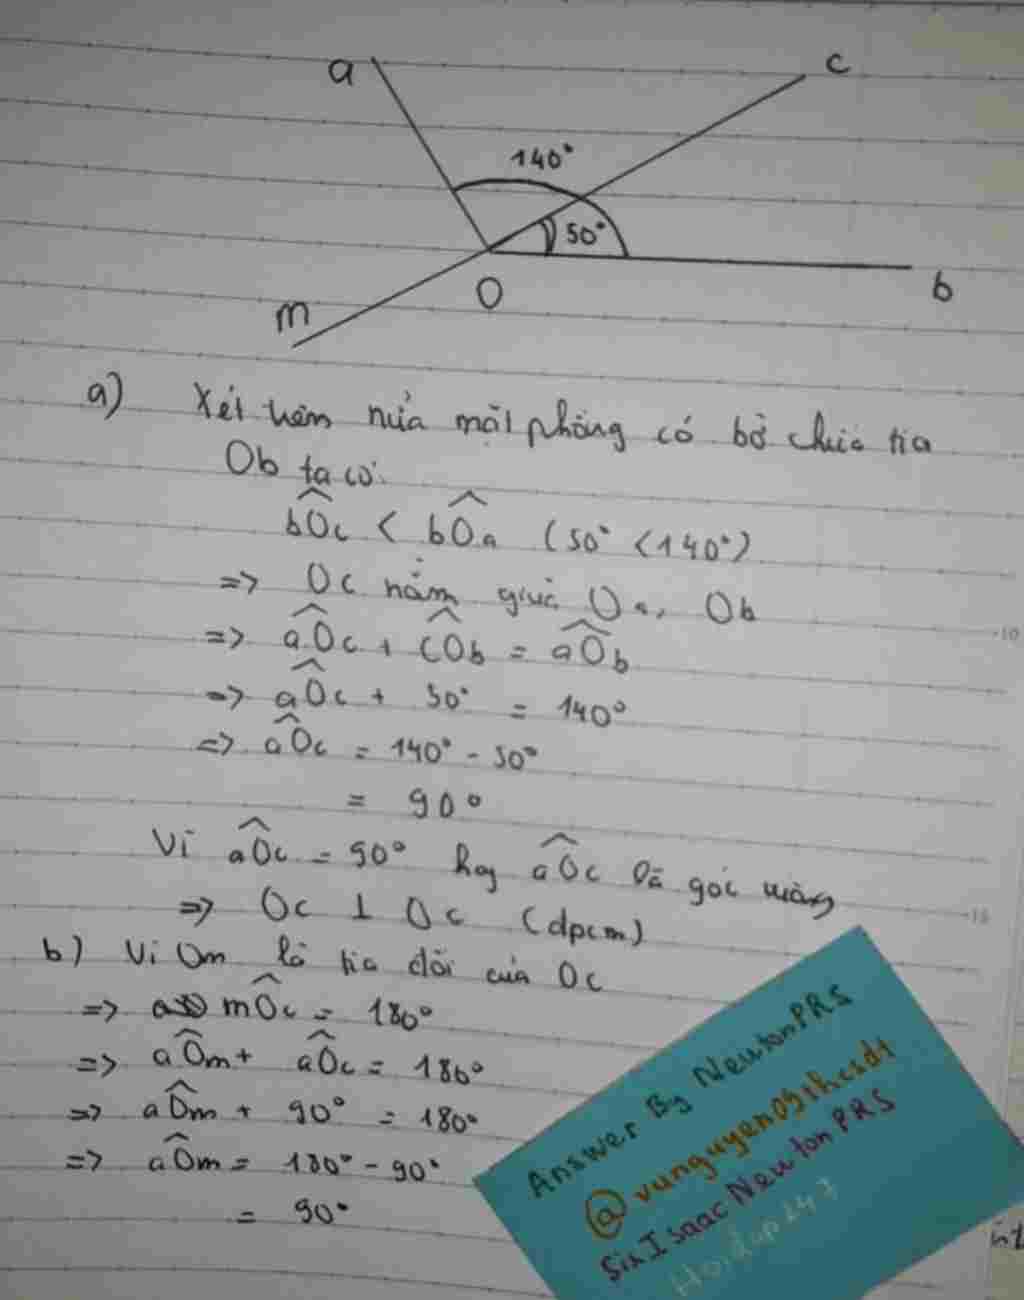 a
c
140°
50°
b
O
m
a) Xét trên nửa mặt phẳng có bờ chứa tia
Ob ta có:
bÔc < bÔa (50° < 140°)
=> Oc nằm giữa Oa, Ob
=> aÔc + cÔb = aÔb
=> aÔc + 50° = 140°
=> aÔc = 140° - 50°
= 90°
Vì aÔc = 90° hay aÔc là góc vuông
=> Oc ⊥ Oc (dpcm)
b) Vì Om là tia đối của Oc
=> mÔc = 180°
=> aÔm + aÔc = 180°
=> aÔm + 90° = 180°
=> aÔm = 180° - 90°
= 90°
10
15
Answer By NewtonPRS
@vunguyen09thcsdt
SirIsaacNewtonPRS
Hoidap247